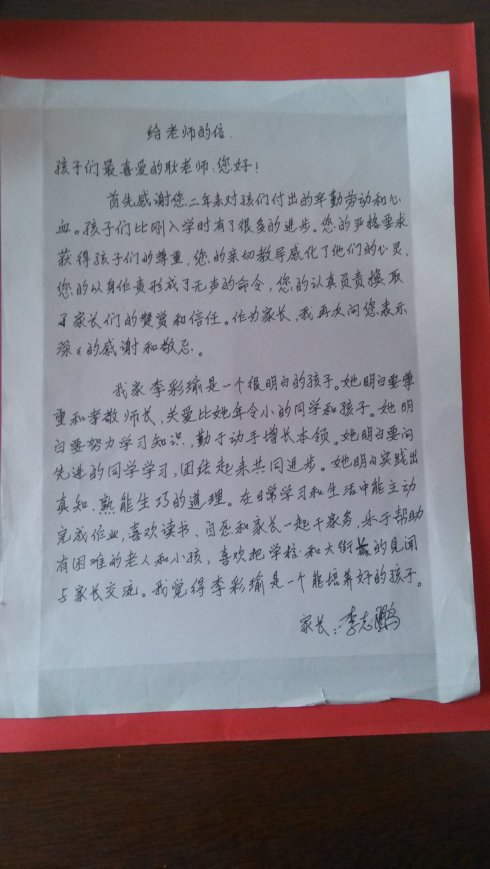 给老师的信
孩子们最喜爱的耿老师：您好！
首先感谢您二年来对孩们付出的辛勤劳动和心
血。孩子们比刚入学时有了很多的进步。您的严格要求
获得孩子们的尊重，您的亲切教导感化了他们的心灵，
您的以身作责形成了无声的命令，您的认真负责换取
了家长们的赞赏和信任。作为家长，我再次向您表示
深深的感谢和敬意。
我家李彩瑜是一个很明白的孩子。她明白要尊
重和孝敬师长，关爱比她年令小的同学和孩子。她明
白要努力学习知识，勤于动手增长本领。她明白要向
先进的同学学习，团结起来共同进步。她明白实践出
真知、熟能生巧的道理。在日常学习和生活中能主动
完成作业，喜欢读书，自愿和家长一起干家务，乐于帮助
有困难的老人和小孩，喜欢把学校和大街的见闻
与家长交流。我觉得李彩瑜是一个能培养好的孩子。
家长：李志鹏